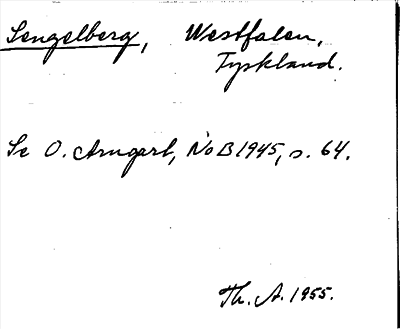 Sengelberg, Westfalen,
Tyskland.
Se O. Arngart, NoB 1945, s. 64.
Th. A. 1955.